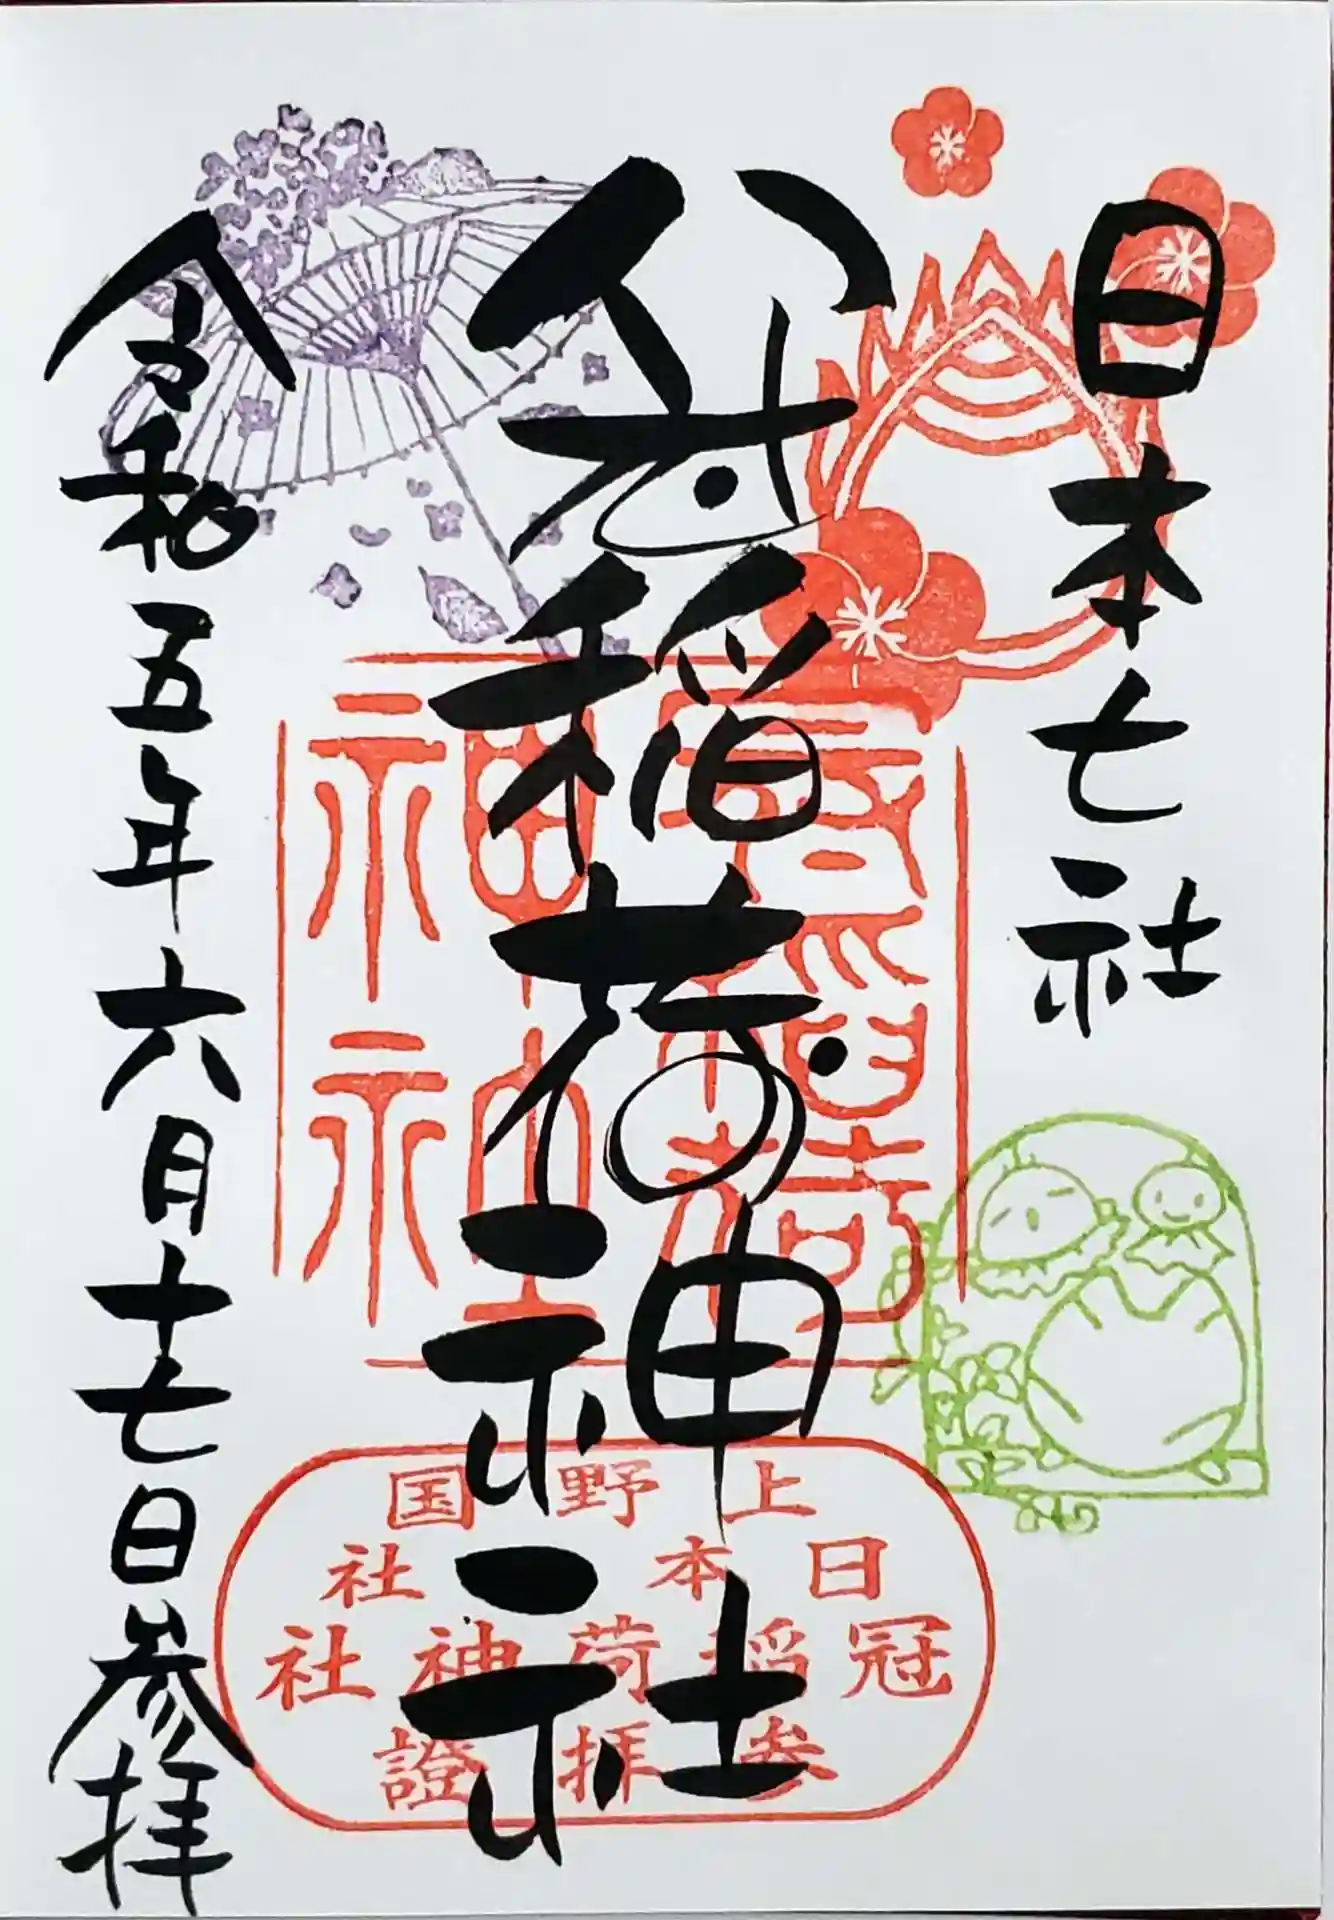 日本七社
冠稲荷神社
令和五年六月十七日参拝
冠稲荷
神社
神
上野国
日本社
冠稲荷神社
参拝證